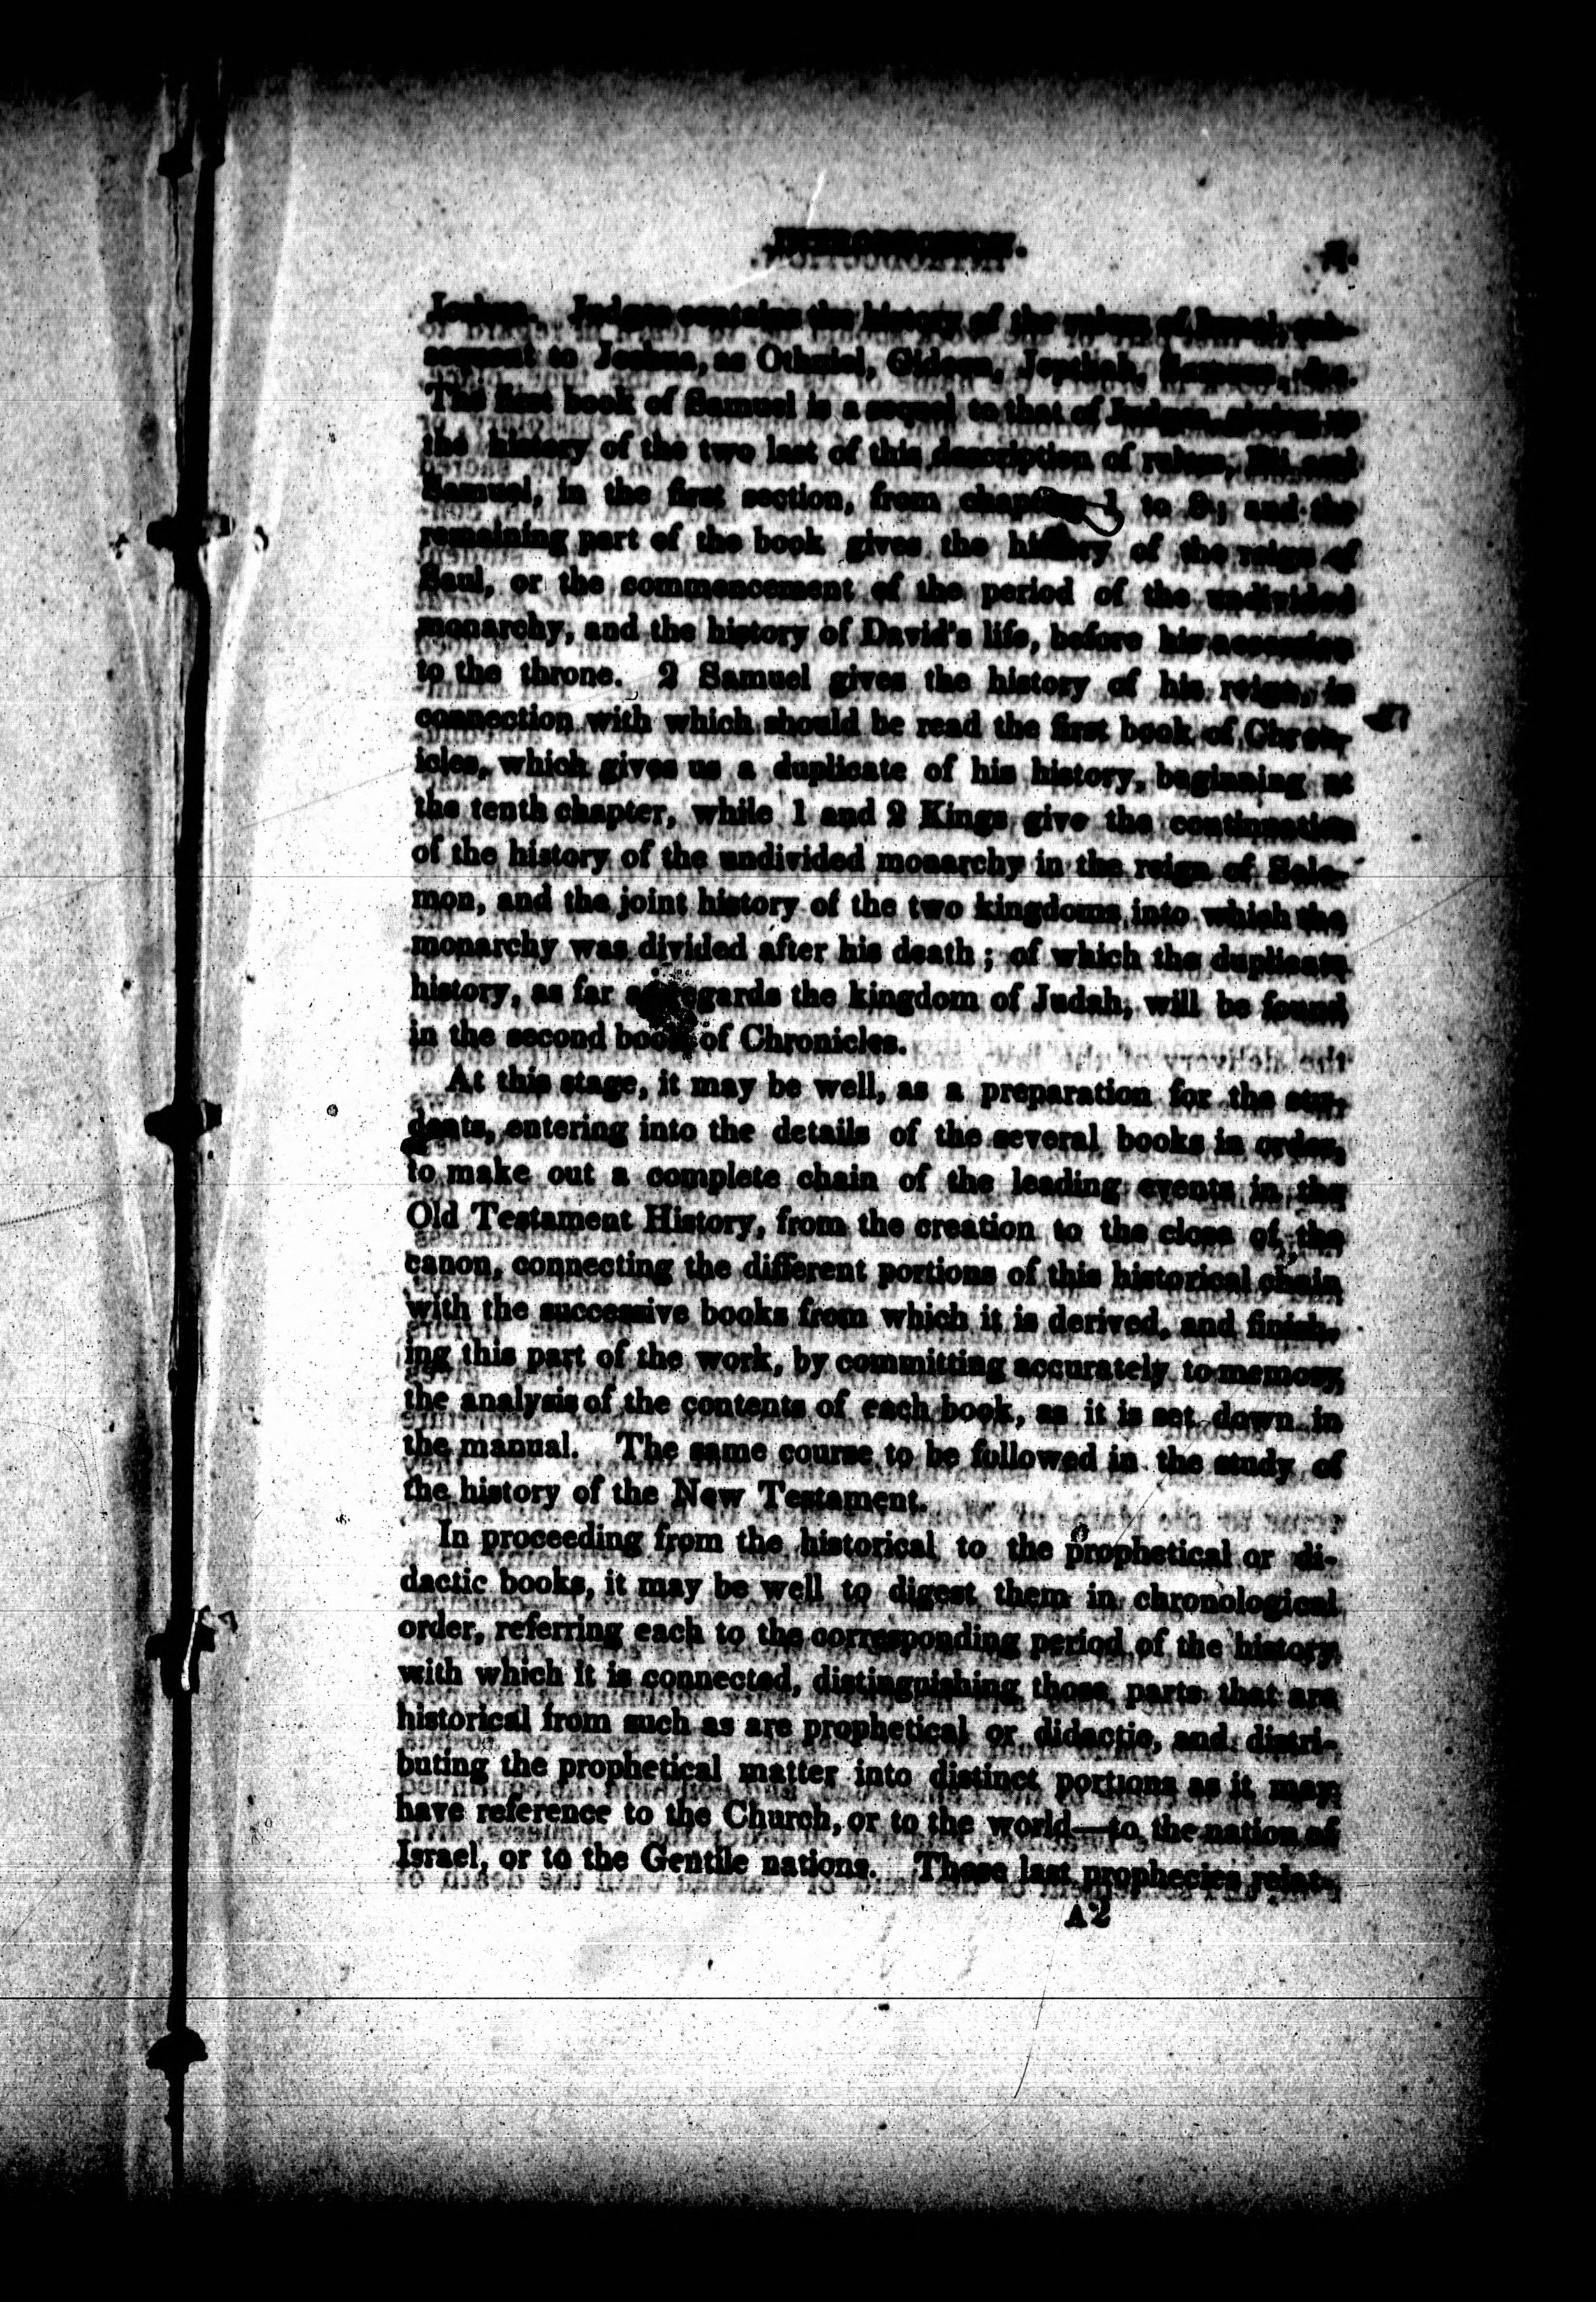 INTRODUCTION.
Joshua. Judges contains the history of the rulers of Israel, sub-
sequent to Joshua, as Othniel, Gideon, Jepthah, Sampson, &c.
The first book of Samuel is a sequel to that of Judges, giving us
the history of the two last of this description of rulers, Eli and
Samuel, in the first section, from chapters 1 to 8; and the
remaining part of the book gives the history of the reign of
Saul, or the commencement of the period of the undivided
monarchy, and the history of David's life, before his accession
to the throne. 2 Samuel gives the history of his reign, in
connection with which should be read the first book of Chron-
icles, which gives us a duplicate of his history, beginning at
the tenth chapter, while 1 and 2 Kings give the continuation
of the history of the undivided monarchy in the reign of Solo-
mon, and the joint history of the two kingdoms into which the
monarchy was divided after his death; of which the duplicate
history, as far as regards the kingdom of Judah, will be found
in the second book of Chronicles.
At this stage, it may be well, as a preparation for the stu-
dents, entering into the details of the several books in order,
to make out a complete chain of the leading events in the
Old Testament History, from the creation to the close of the
canon, connecting the different portions of this historical chain
with the successive books from which it is derived, and finish-
ing this part of the work, by committing accurately to memory,
the analysis of the contents of each book, as it is set down in
the manual. The same course to be followed in the study of
the history of the New Testament.
In proceeding from the historical to the prophetical or di-
dactic books, it may be well to digest them in chronological
order, referring each to the corresponding period of the history
with which it is connected, distinguishing those parts that are
historical from such as are prophetical or didactic, and distri-
buting the prophetical matter into distinct portions as it may
have reference to the Church, or to the world—to the nation of
Israel, or to the Gentile nations. These last prophecies relat-
A2